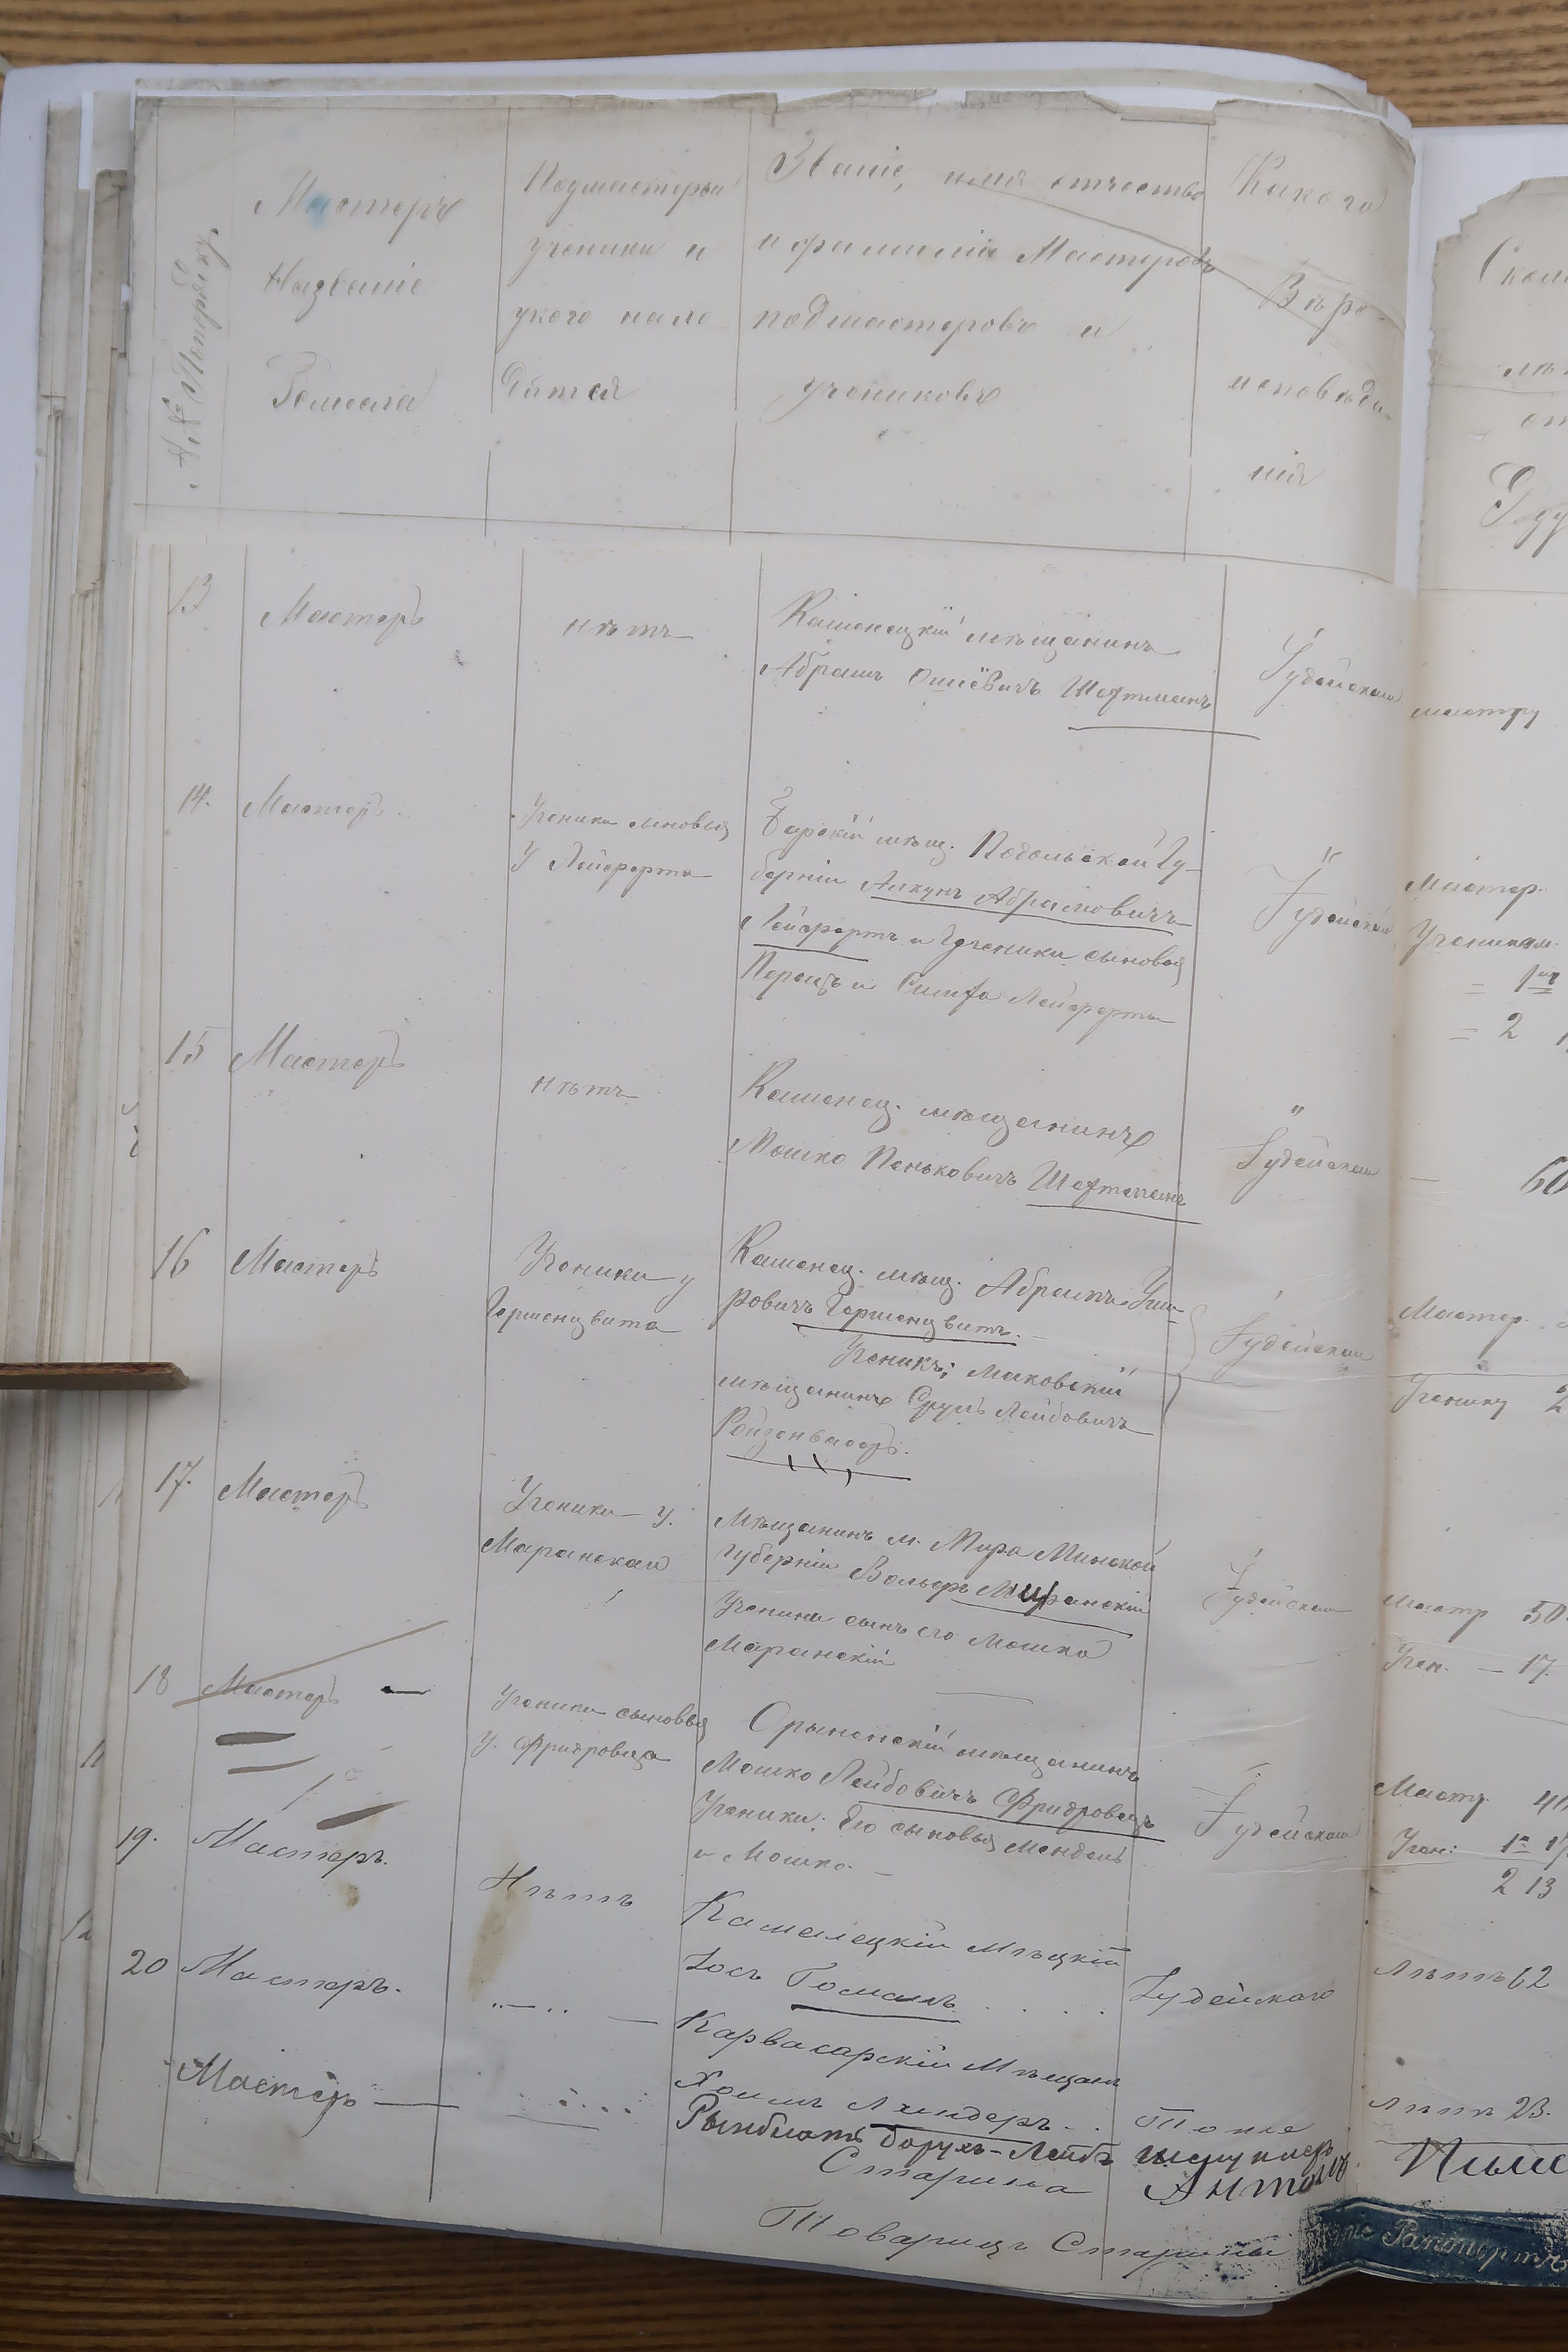 №№ Попорядку
Мастеръ
Названіе
Ремесла
Подмастерья
ученики и
укого нахо
дятся
Званіе, имя отчество
и фамилія Мастеровъ
подмастеровъ и
учениковъ
Какого
Вѣро-
исповѣда-
нія
13
Мастеръ
нѣтъ
Каменецкій мѣщанинъ
Абрамъ Ошіевичъ Шефтманъ
Іудейскаго
мастру
14.
Мастеръ
Ученики сыновья
У Лейферта
Барскій мѣщ. Подольской Гу-
берніи Абрамовичъ
Лейфертъ и Ученики сыновья
Перецъ и Лейферты
Іудейскаго
Мастер.
Ученикам.
= 1й
= 2
15
Мастеръ
нѣтъ
Каменец. мѣщанинъ
Мошко Пеньковичъ Шефтманъ
Іудейскаго
60
16
Мастеръ
Ученики у
Гершенцвита
Каменец. мѣщ. Абрамъ
ровичъ Гершенцвитъ.
Ученикъ; Маковскій
мѣщанинъ Срулъ Лейбовичъ
Ройзенвасеръ.
Іудейскаго
Мастер.
Ученику 2
17.
Мастеръ
Ученики – у.
Маранскаго
Мѣщанинъ м. Мира Минской
губерніи Вольфъ Миранскій
Ученики сынъ его Мошко
Маранскій
Іудейскаго
Мастр 50
Учен. – 17.
18
Мастеръ
Ученики сыновья
У. Фридровица
Орынинскій мѣщанинъ
Мошко Лейбовичъ Фридровецъ
Ученики; Его сыновья Мендель
и Мошко. –
Іудейскаго
Мастр. 40
Учен: 1й 17
2 13
19.
Мастеръ.
Нѣтъ
Каменецкій Мѣщкій
Іось Гоманъ
Іудейскаго
Лѣтъ 62
20
Мастеръ.
Карвасарскій Мѣщан
Хаимъ Линдеръ
Тоже
Лѣтъ 23.
Мастеръ
Рынблатъ Борухъ-Лейбъ
Старшина
Товарищъ Старшины
Рапопортъ